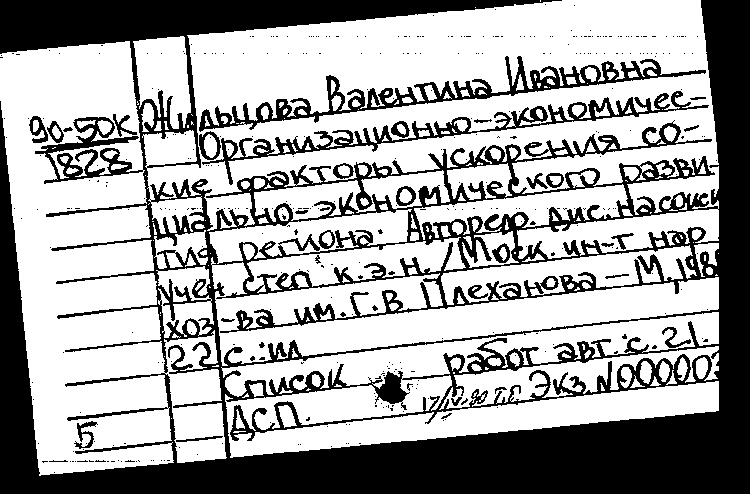 90-50К
1828
Жильцова, Валентина Ивановна
Организационно-экономичес-
кие факторы ускорения со-
циально-экономического разви-
тия региона: Автореф. дис. на соиск
учен. степ к.э.н. / Моск. ин-т нар
хоз-ва им. Г.В. Плеханова — М., 198
22 с.: ил
Список работ авт.: с. 21.
ДСП. Экз. N00000
5